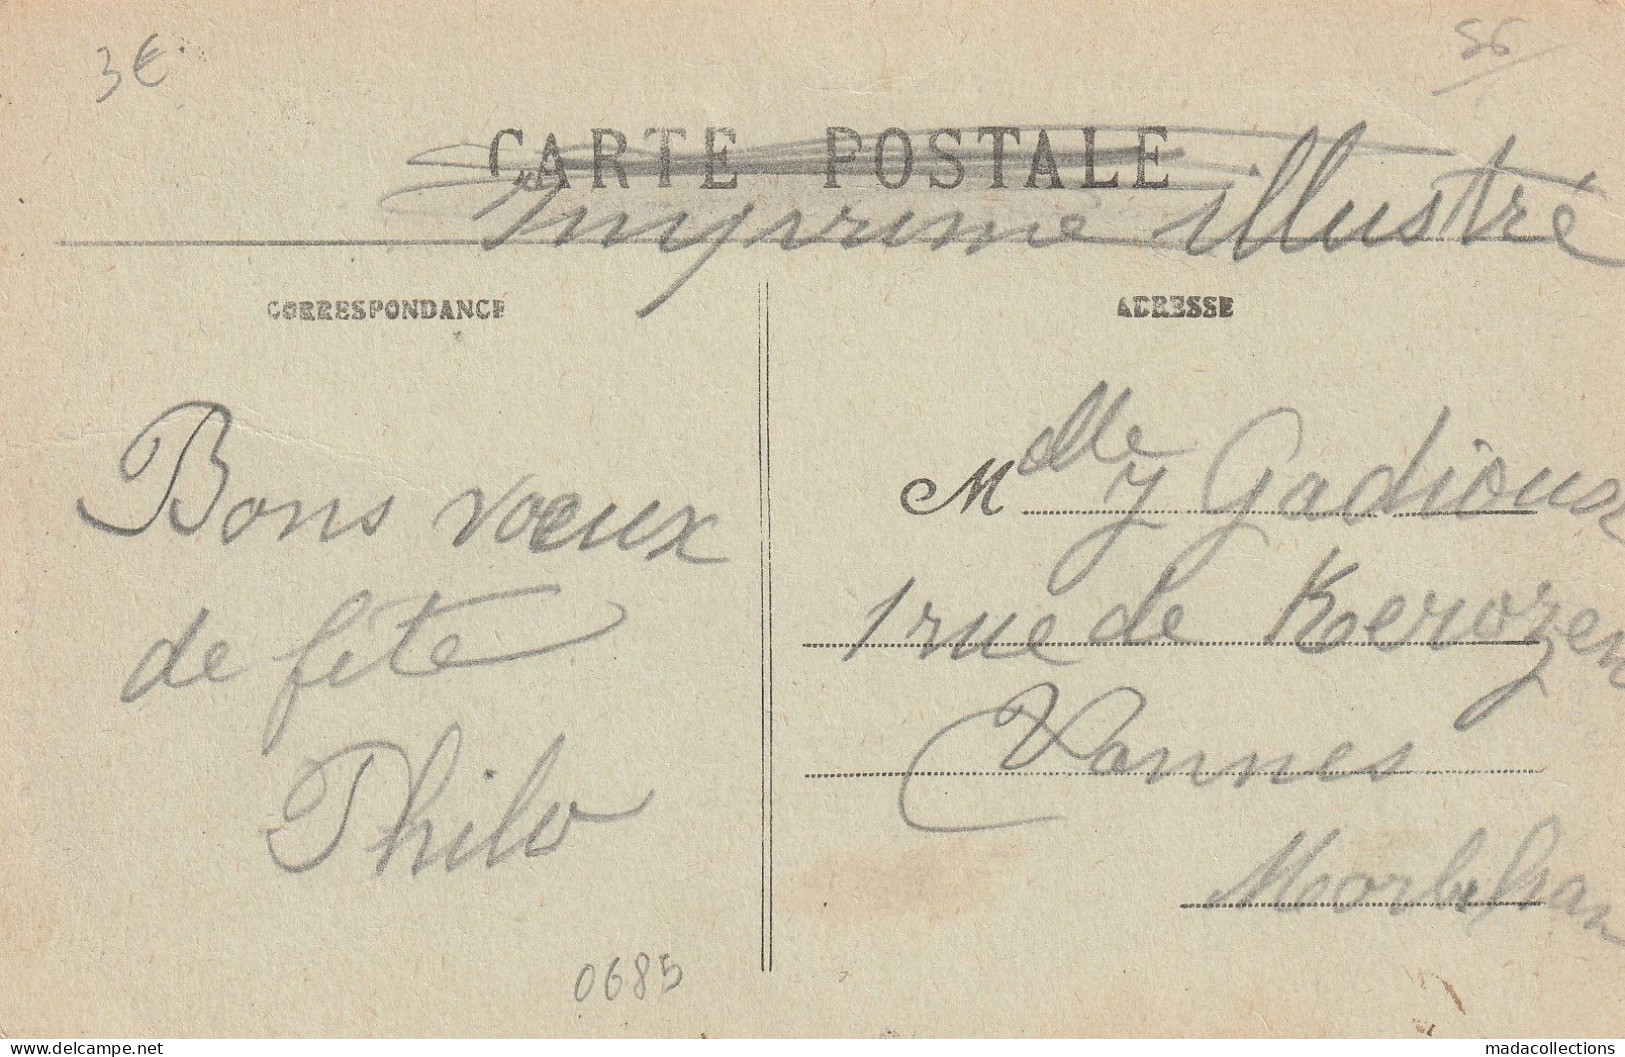 3€
56
CARTE POSTALE
Imprimé illustré
CORRESPONDANCE
ADRESSE
Bons voeux
de fête
Philo
Mdlle Y Gadioux
1 rue de Kerozen
Vannes
Morbihan
0685
www.delcampe.net
madacollections